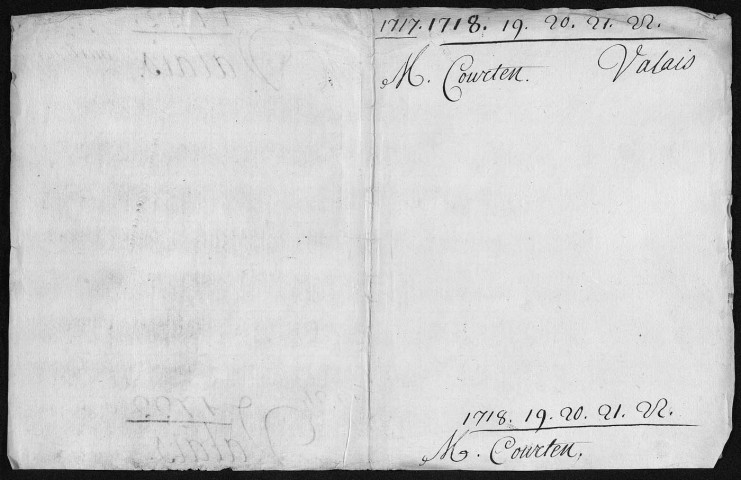 1717. 1718. 19. 20. 21. 22.
M. Courten. Valais
1718. 19. 20. 21. 22.
M. Courten.